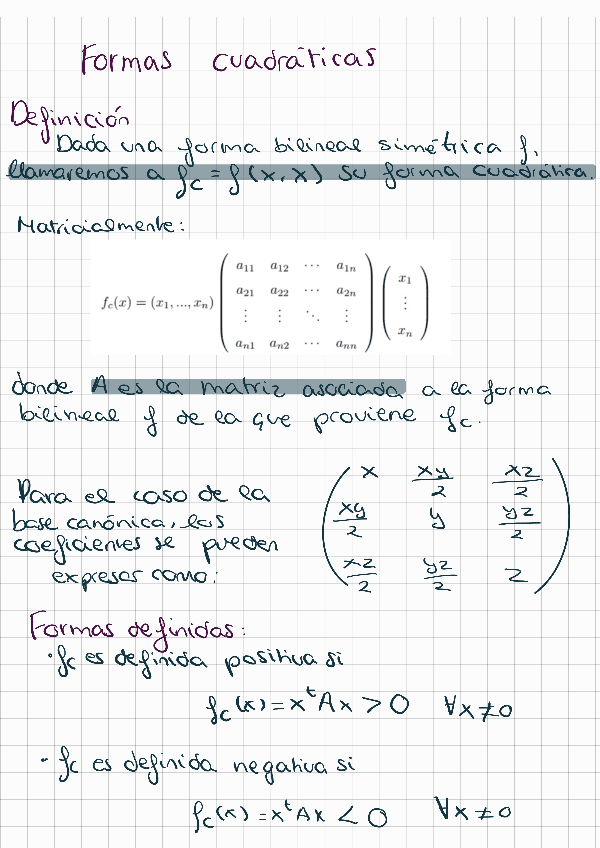 Formas cuadráticas
Definición
Dada una forma bilineal simétrica f,
llamaremos a f_c = f(x,x) su forma cuadrática.
Matricialmente:
f_c(x) = (x_1, ..., x_n) \begin{pmatrix} a_{11} & a_{12} & \cdots & a_{1n} \\ a_{21} & a_{22} & \cdots & a_{2n} \\ \vdots & \vdots & \ddots & \vdots \\ a_{n1} & a_{n2} & \cdots & a_{nn} \end{pmatrix} \begin{pmatrix} x_1 \\ \vdots \\ x_n \end{pmatrix}
donde A es la matriz asociada a la forma
bilineal f de la que proviene f_c.
Para el caso de la
base canónica, los
coeficientes se pueden
expresar como:
\begin{pmatrix} x & \frac{xy}{2} & \frac{xz}{2} \\ \frac{xy}{2} & y & \frac{yz}{2} \\ \frac{xz}{2} & \frac{yz}{2} & z \end{pmatrix}
Formas definidas:
· f_c es definida positiva si
f_c(x) = x^t A x > 0 ∀x ≠ 0
· f_c es definida negativa si
f_c(x) = x^t A x < 0 ∀x ≠ 0